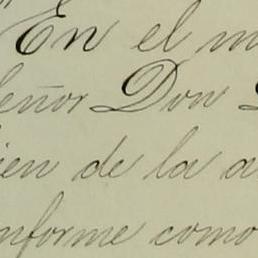 "En el m
eñor Don
ien de la a
nforme como